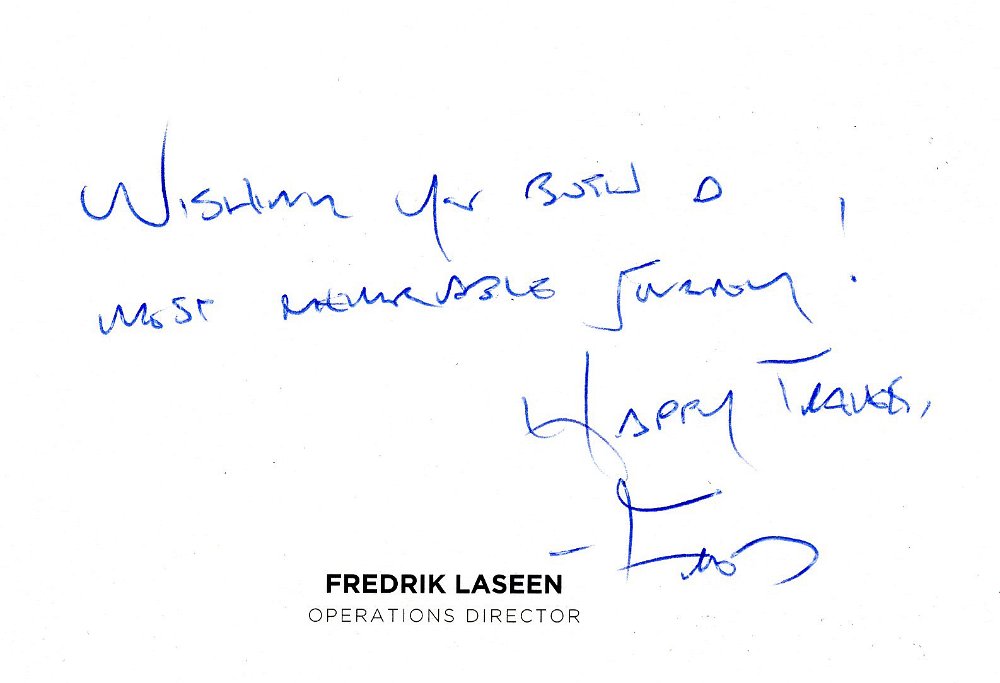 WISHING YOU BOTH A
MOST MEMORABLE JOURNEY!
HAPPY TRAVELS,
FREDRIK LASEEN
OPERATIONS DIRECTOR